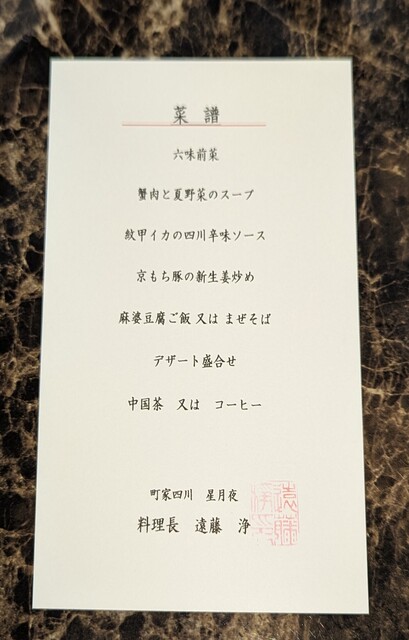 菜譜
六味前菜
蟹肉と夏野菜のスープ
紋甲イカの四川辛味ソース
京もち豚の新生姜炒め
麻婆豆腐ご飯 又は まぜそば
デザート盛合せ
中国茶　又は　コーヒー
町家四川　星月夜
料理長　遠藤　浄
遠藤